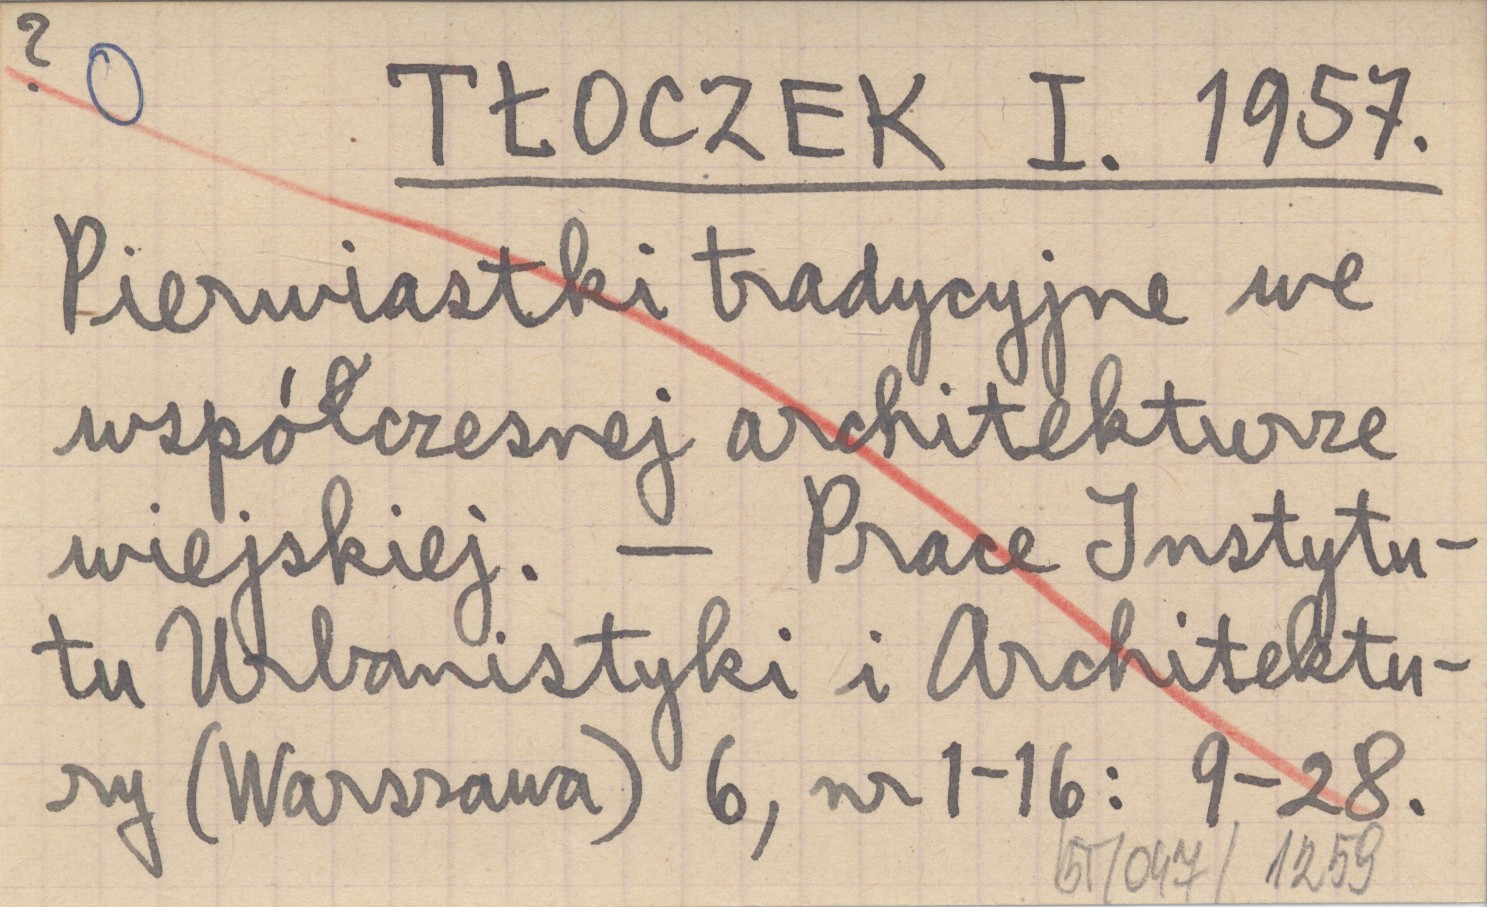 ?
TŁOCZEK I. 1957.
Pierwiastki tradycyjne we
współczesnej architekturze
wiejskiej. — Prace Instytu-
tu Urbanistyki i Architektu-
ry (Warszawa) 6, nr 1-16: 9-28.
1259